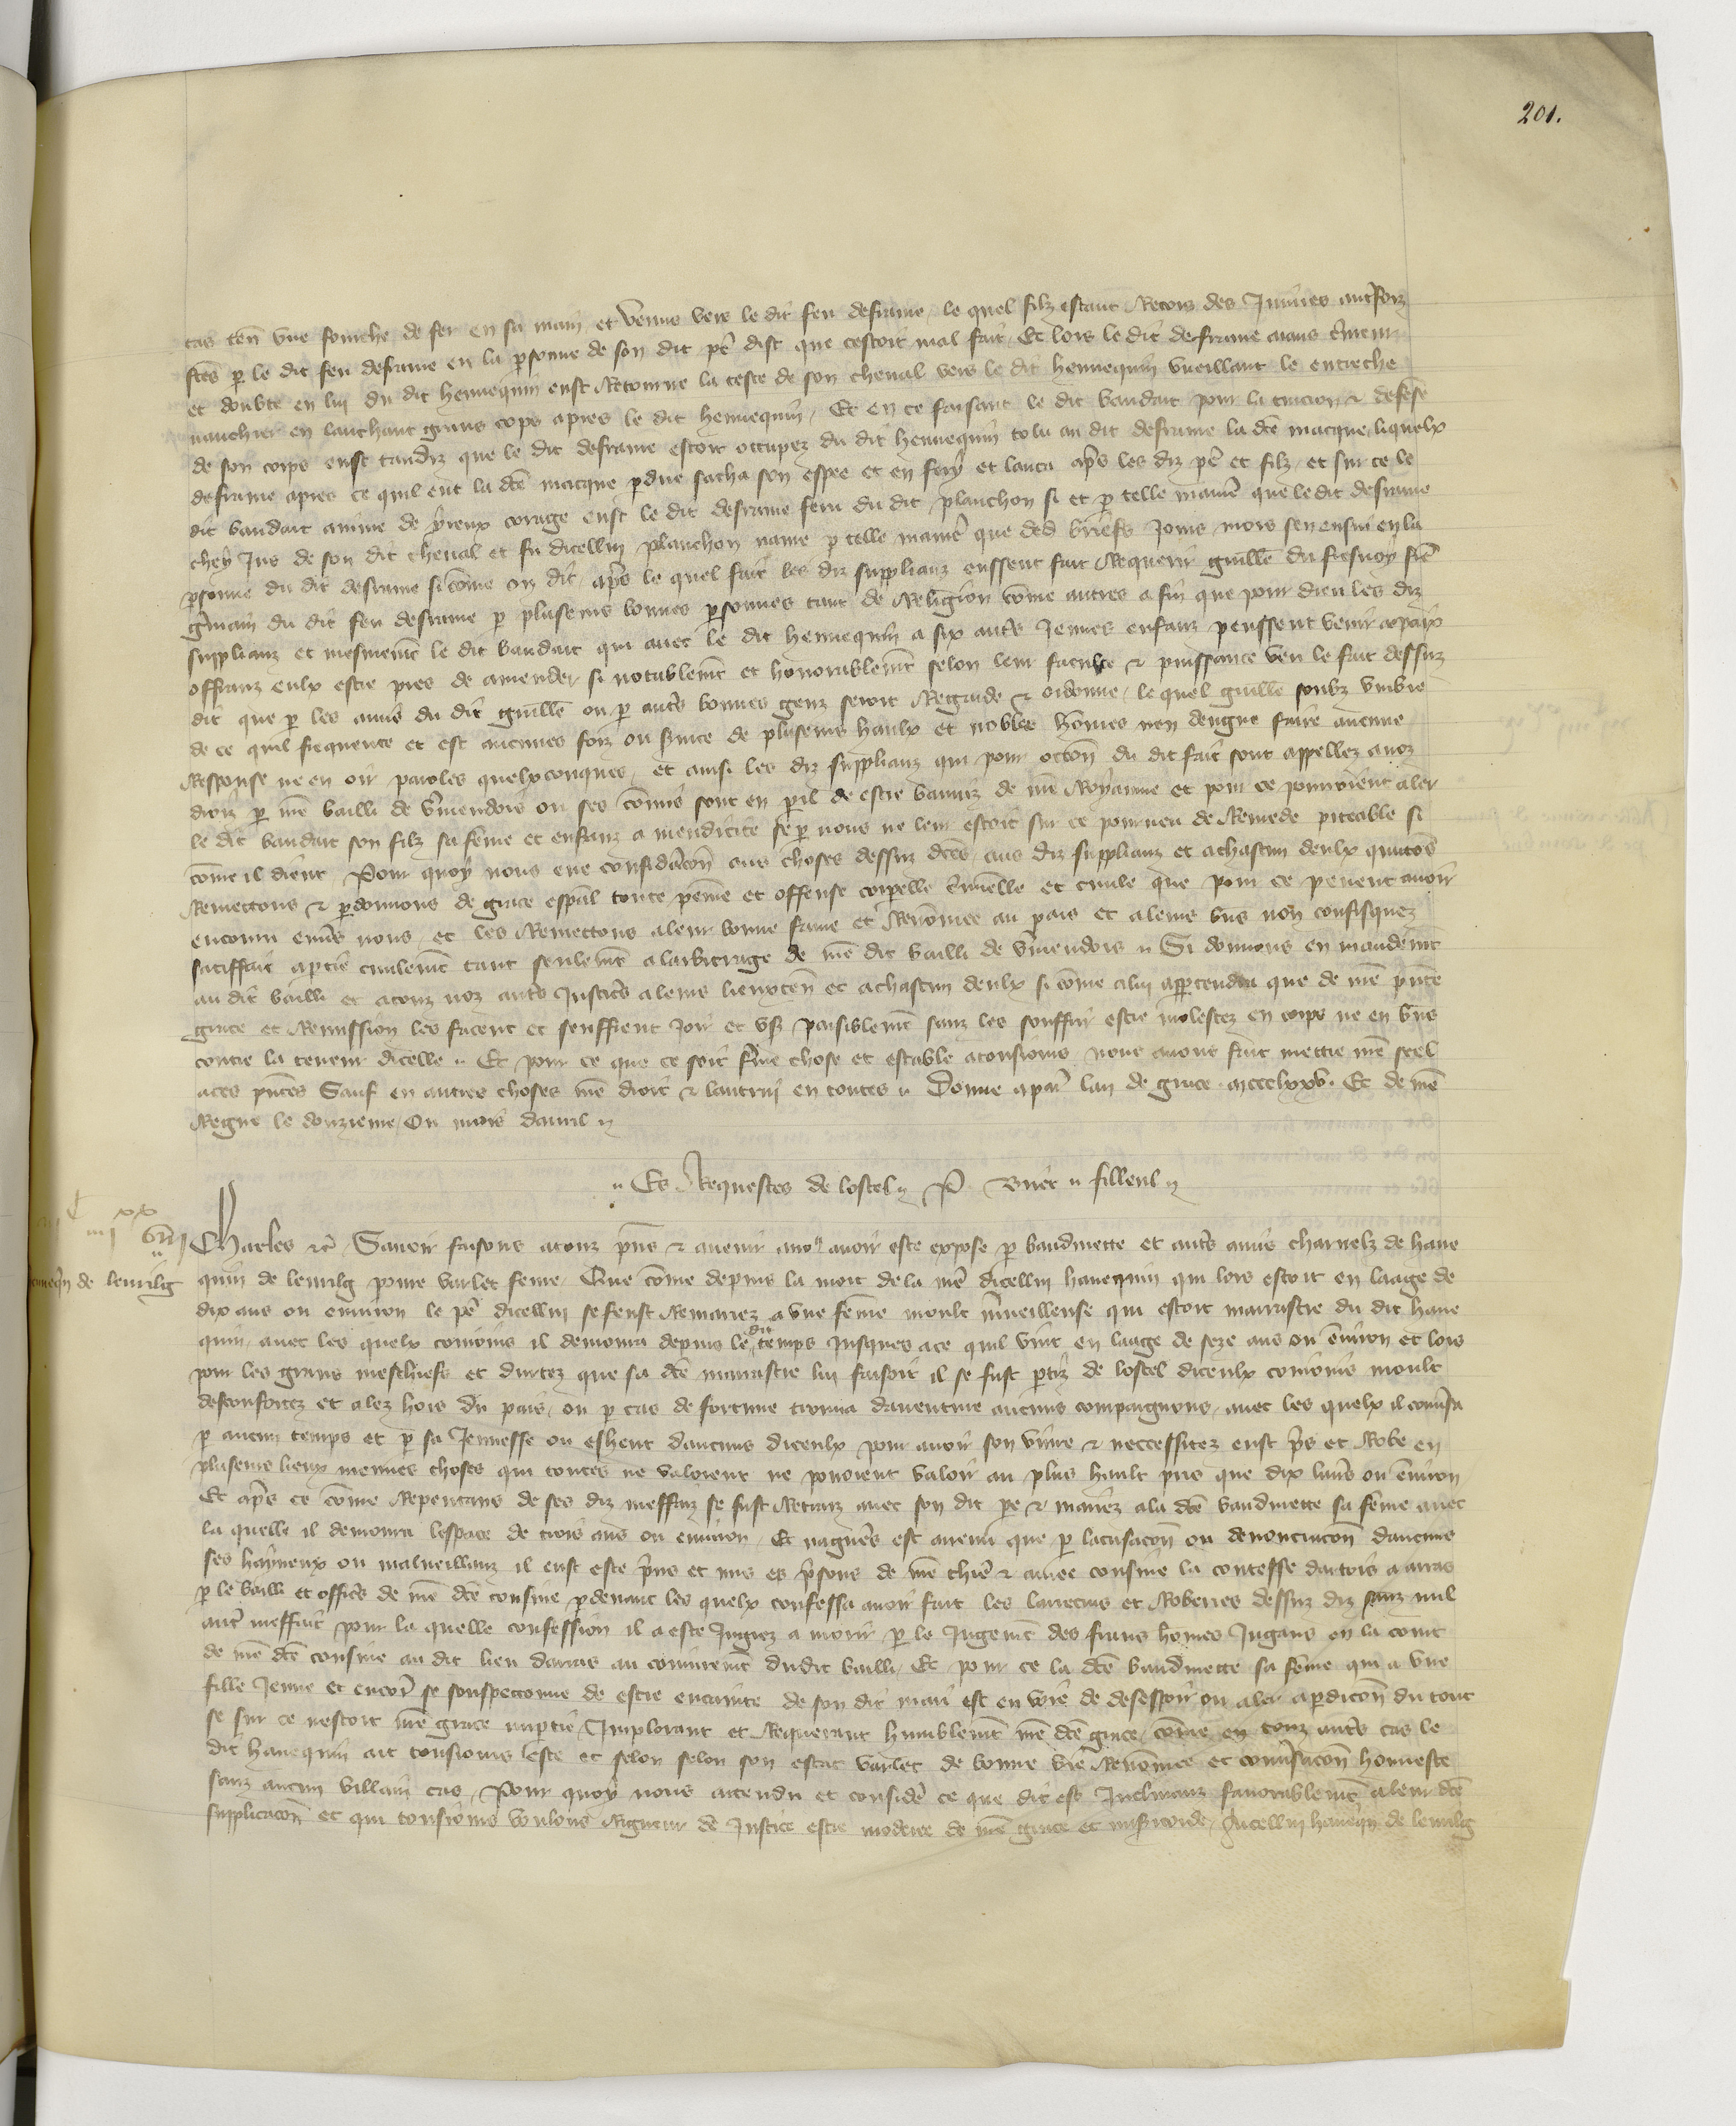 201.
cas ten une fourche de fer en sa main et venue vers le dit feu desrame, le quel filz estant Recors des Iniures autrefoiz
ftes p le dit feu desrame en la psonne de son dit pe dist que cestoit mal fait, Et lors le dit desrame aians cremeur
et doubte en lui du dit hennequin eust Retourne la teste de son cheval vers le dit hennequin vueillant le
en lanchant grans cops apres le dit hennequin, Et en ce faisant le dit baudart pour la tuicion & defese
de son corps eust tandiz que le dit desrame estoit occupez du dit hennequin tolu au dit desrame la dce macque, liquelx
desrame apres ce quil eut la dce macque pdue sacha son espee et en fery et lanca aps les diz pe et filz, et sur ce le
dit baudart anime de yreux corage eust le dit desrame feru du dit planchon si et p telle manie que le dit desrame
chey Jus de son dit cheval et fu dicellui planchon navre p telle manie que ded briefs Jours mors sen ensui en la
psonne du dit desrame si come on dit, aps le quel fait les diz supplianz eussent fait Requerir guille du fresnoy fre
gmain du dit feu desrame p pluseurs bonnes psonnes tant de Religion come autres a fin que pour dieu les diz
supplianz et mesment le dit baudart qui avec le dit hennequin a six auts Jennes enfanz peussent venir a paix
offranz eulx estre prez de amender si notablemt et honorablemt selon leur faculte & puissance veu le fait dessuz
dit que p les amis du dit guille ou p auts bonnes genz seroit Regarde & ordonne, le quel guille soubz umbre
de ce quil frequente et est aucunes foiz ou svice de pluseurs haulx et nobles homes nen dengne faire aucune
Response ne en oir paroles quelxconques, et ainsi les diz supplianz qui pour occon du dit fait sont appellez a noz
droiz p nre bailli de vmendois ou ses comis sont en pil de estre banniz de nre Royaume et pour ce pourroient aler
le dit baudart son filz sa feme et enfanz a mendicite se p nous ne leur estoit sur ce pourveu de Remede piteable si
come il dient, Pour quoy nous eue consideracon aus choses dessuz dces, aus diz supplianz et a chascun deulx quittos
Remettons & pdonnons de grace espal toute peine et offense corpelle criminelle et civile que pour ce pevent avoir
encouru envs nous, et les Remettons a leur bonne fame et Renomee au pais et a leurs bns non confisquez
satiffait a ptie civilemt tant seulemt a larbitrage de nre dit bailli de vmendois. Si donnons en mandemt
au dit bailli et a touz noz auts Justics a leurs lieuxten et a chascun deulx si come a lui apptendra que de nre pnte
grace et Remission les facent et seuffrent Joir et user paisiblemt sanz les souffrir estre molestez en corps ne en bns
contre la teneur dicelle. Et pour ce que ce soit ferme chose et estable a tousiours nous avons fait mettre nre seel
a ces pntes Sauf en autres choses nre droit & lautrui en toutes. Donne a par lan de grace mccclxxv. Et de nre
Regne le douzieme, Ou mois davril
Es Requestes de lostel. P Buer. filleul
C iiiixx vii
Charles &c Savoir faisons a touz pns & avenir a nous avoir este expose p baudinette et auts amis charnelz de hane
hanequin de lenvilg
quin de lenvilg povre varlet feme, Que come depuis la mort de la me dicellui hanequin qui lors estoit en laage de
dix ans ou environ le pe dicellui se feust Remariez a une feme moult mveilleuse qui estoit marrastre du dit hane
quin, avec les quelx conioins il demoura depuis le dit temps Jusques a ce quil vint en laage de seze ans ou environ et lors
pour les grans meschiefs et durtez que sa dce marrastre lui faisoit il se fust ptiz de lostel diceulx conioins moult
desconfortez et alez hors du pais, ou p cas de fortune trouva daventure aucuns compaignons, avec les quelx il convsa
p aucun temps et p sa Jennesse ou eshent daucuns diceulx pour avoir son vivre & neccessitez eust ps et Robe en
pluseurs lieux menues choses qui toutes ne valoient ne povoient valoir au plus hault pris que dix livres ou environ
Et aps ce come Repentans de ses diz meffaiz se fust Retraiz avec son dit pe & mariez a la dce baudinette sa feme avec
la quelle il demoura lespace de trois ans ou environ, Et nagues est avenu que p lacusacon ou denonciacon daucuns
ses hayneux ou malveillanz il eust este prins et mis es prisons de nre chiere & amee cousine la contesse dartois a arras
p le bailli et offics de nre dce cousine pdevant les quelx confessa avoir fait les larrecins et Roberies dessuz diz sanz nul
autre meffait, pour la quelle confession il a este Jugiez a morir p le Jugemt des frans homes Jugans en la court
de nre dce cousine au dit lieu darras au coniuremt dudit bailli, Et pour ce la dce baudinette sa feme qui a une
fille Jenne et encor se souspeconne de estre encainte de son dit mari est en voie de desespoir ou aler a pdicon du tout
se sur ce nestoit nre grace impartie, Implorant et Requerant humblemt nre dce grace, come en touz auts cas le
dit hanequin ait tousiours este et selon selon son estat varlet de bonne vie Renomee et convsacon honneste
sanz aucun villain cas, Pour quoy nous attendu et considere ce que dit est Inclinanz favorablemt a leur dce
supplicacon et qui tousiours voulons Rigueur de Justice estre moderee de nre grace et misericorde, Aicellui hanequin de lenvilg